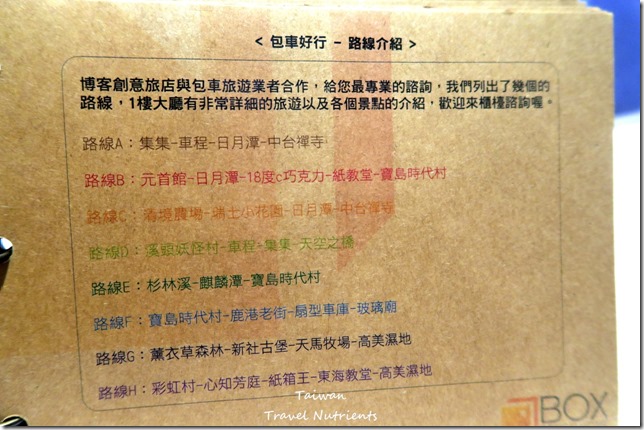 < 包車好行 - 路線介紹 >
博客創意旅店與包車旅遊業者合作，給您最專業的諮詢，我們列出了幾個的
路線，1樓大廳有非常詳細的旅遊以及各個景點的介紹，歡迎來櫃檯諮詢喔。
路線A：集集-車程-日月潭-中台禪寺
路線B：元首館-日月潭-18度c巧克力-紙教堂-寶島時代村
路線C：清境農場-瑞士小花園-日月潭-中台禪寺
路線D：溪頭妖怪村-車程-集集-天空之橋
路線E：杉林溪-麒麟潭-寶島時代村
路線F：寶島時代村-鹿港老街-扇型車庫-玻璃廟
路線G：薰衣草森林-新社古堡-天馬牧場-高美濕地
路線H：彩虹村-心知芳庭-紙箱王-東海教堂-高美濕地
BOX
Taiwan
Travel Nutrients